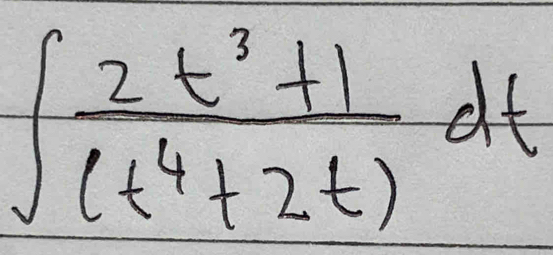 ∫ (2t³ + 1)/((t⁴ + 2t)) dt